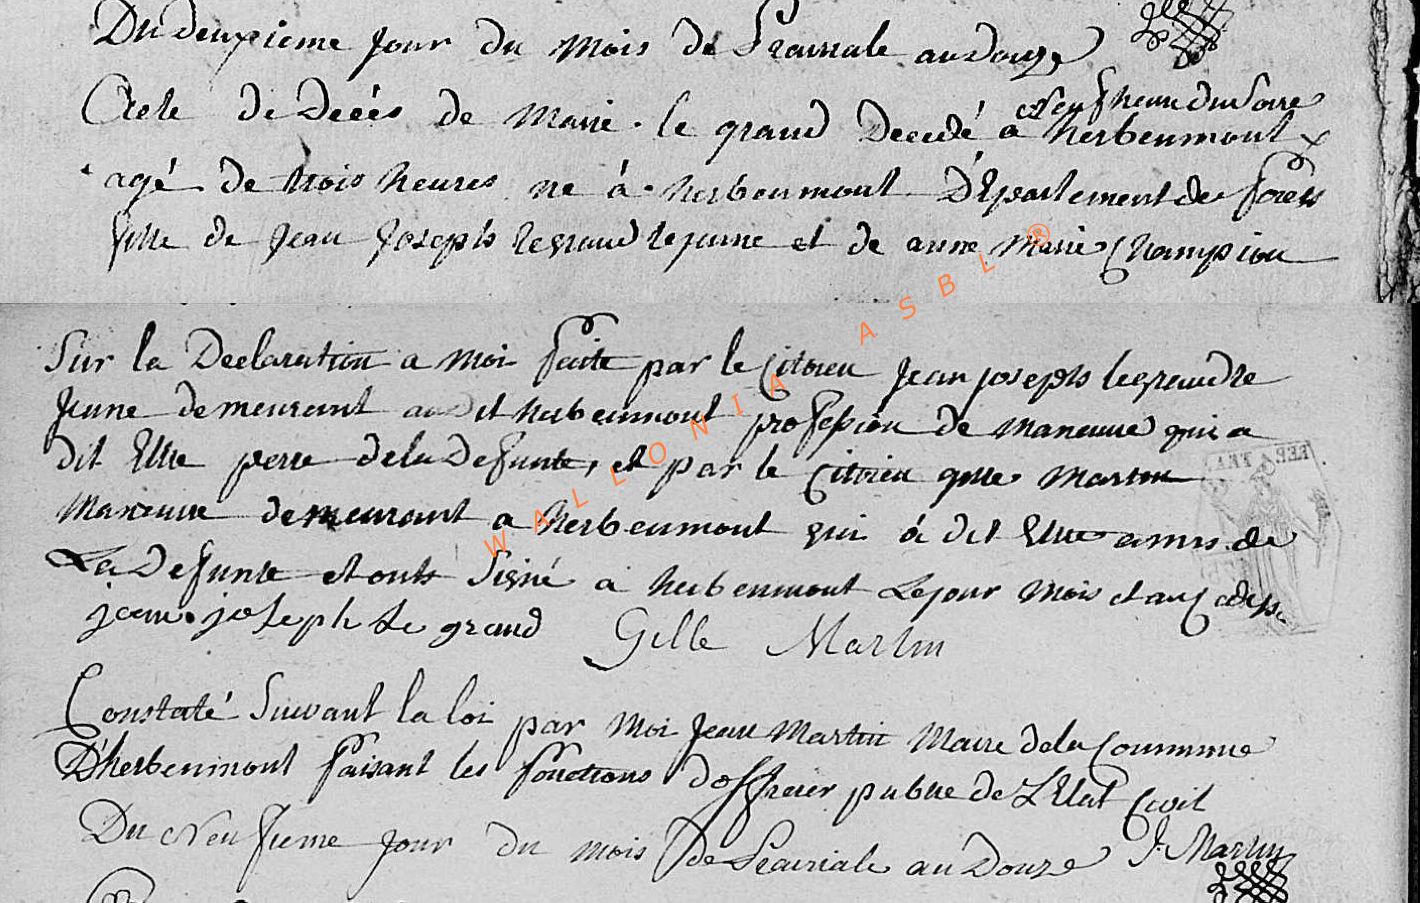 Du deuxieme jour du mois de Prairiale an Douze
Acte de Décés de Marie le grand Decedé a herbeumont
neuf heure du Soire
agé de trois heures né á herbeumont Département de forets
fille de Jean Joseph legrand lejeune et de anne Marie Champion
Sur la Declaration a moi faite par le Citoien Jean joseph legrand le
Jeune demeurant audit herbeumont profession de maneuve qui a
dit Etre perre dela Defunte, et par le Citoien gille Martin
Maneuve demeurant a herbeumont qui á dit Etre amis de
La Defunte et onts Signé a herbeumont Lejour mois et an
jean joseph Le grand Gille Martin
Constaté Suivant la loi par moi Jean Martin Maire dela Commune
D'herbeumont faisant les fonctions d'officier publie de L'Etat Civil
J. Martin
Du Neufieme jour du mois de Prairiale an Douze
WALLONIA ASBL ®